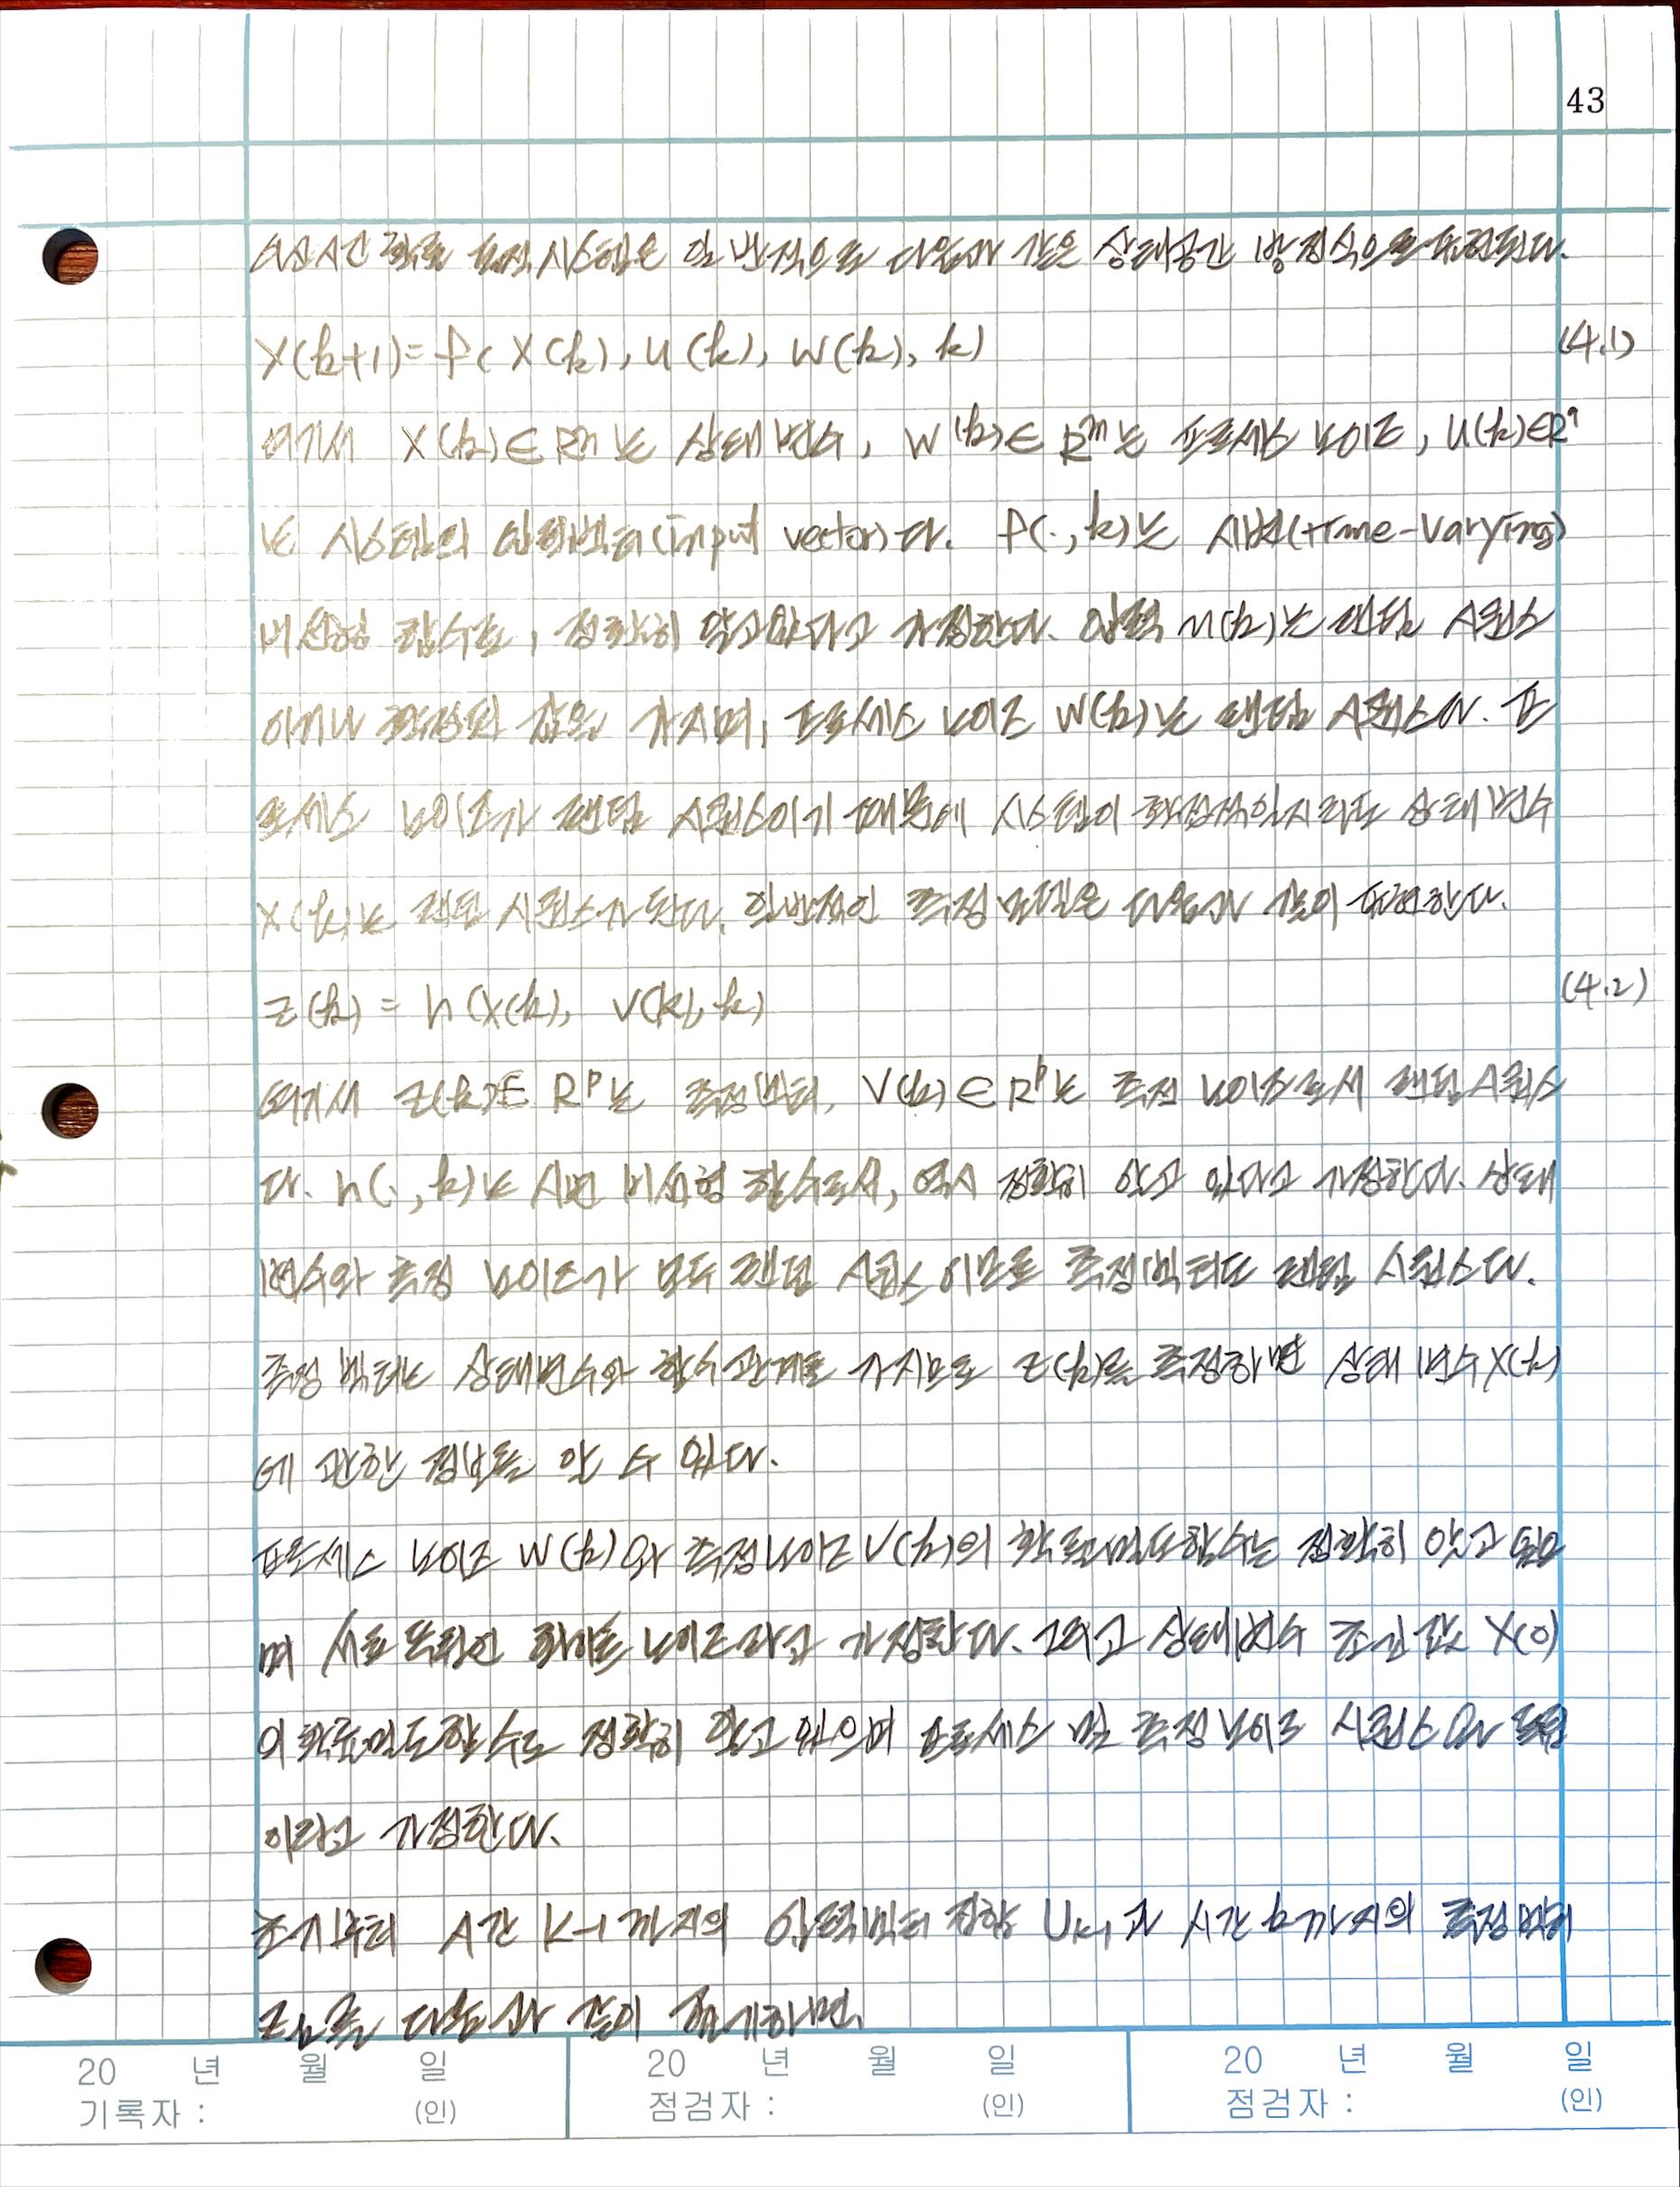 43
이산시간 확률 동적 시스템은 일반적으로 다음과 같은 상태공간 방정식으로 표현된다.
x(k+1)=f(x(k), u(k), w(k), k) (4.1)
여기서 x(k)∈Rⁿ는 상태변수, w(k)∈Rᵐ는 프로세스 노이즈, u(k)∈R
는 시스템의 입력벡터(input vector)다. f(·,k)는 시변(time-varying)
비선형 함수로, 정확히 알고있다고 가정한다. 입력 u(k)는 랜덤 시퀀스
이거나 확정된 값을 가지며, 프로세스 노이즈 w(k)는 랜덤 시퀀스다. 프
로세스 노이즈가 랜덤 시퀀스이기 때문에 시스템이 확정적일지라도 상태변수
x(k)는 랜덤 시퀀스가 된다. 일반적인 측정 모델은 다음과 같이 표현한다.
z(k) = h(x(k), v(k), k) (4.2)
여기서 z(k)∈Rᵖ는 측정벡터, v(k)∈Rᵖ는 측정 노이즈로서 랜덤시퀀스
다. h(·,k)는 시변 비선형 함수로서, 역시 정확히 알고 있다고 가정한다. 상태
변수와 측정 노이즈가 모두 랜덤 시퀀스 이므로 측정벡터도 랜덤 시퀀스다.
측정 벡터는 상태변수와 함수관계를 가지므로 z(k)를 측정하면 상태변수x(k)
에 관한 정보를 알 수 있다.
프로세스 노이즈 w(k)와 측정노이즈 v(k)의 확률밀도함수는 정확히 알고
며 서로 독립인 화이트 노이즈라고 가정한다. 그리고 상태변수 초깃값 x(0)
의 확률밀도함수도 정확히 알고 있으며 프로세스 및 측정 노이즈 시퀀스와 독립
이라고 가정한다.
초기부터 시간 k-1까지의 입력벡터 집합 Uₖ₋₁과 시간 k까지의 측정벡터
를 다음과 같이 하면,
20 년 월 일 20 년 월 일 20 년 월 일
기록자 : (인) 점검자 : (인) 점검자 : (인)